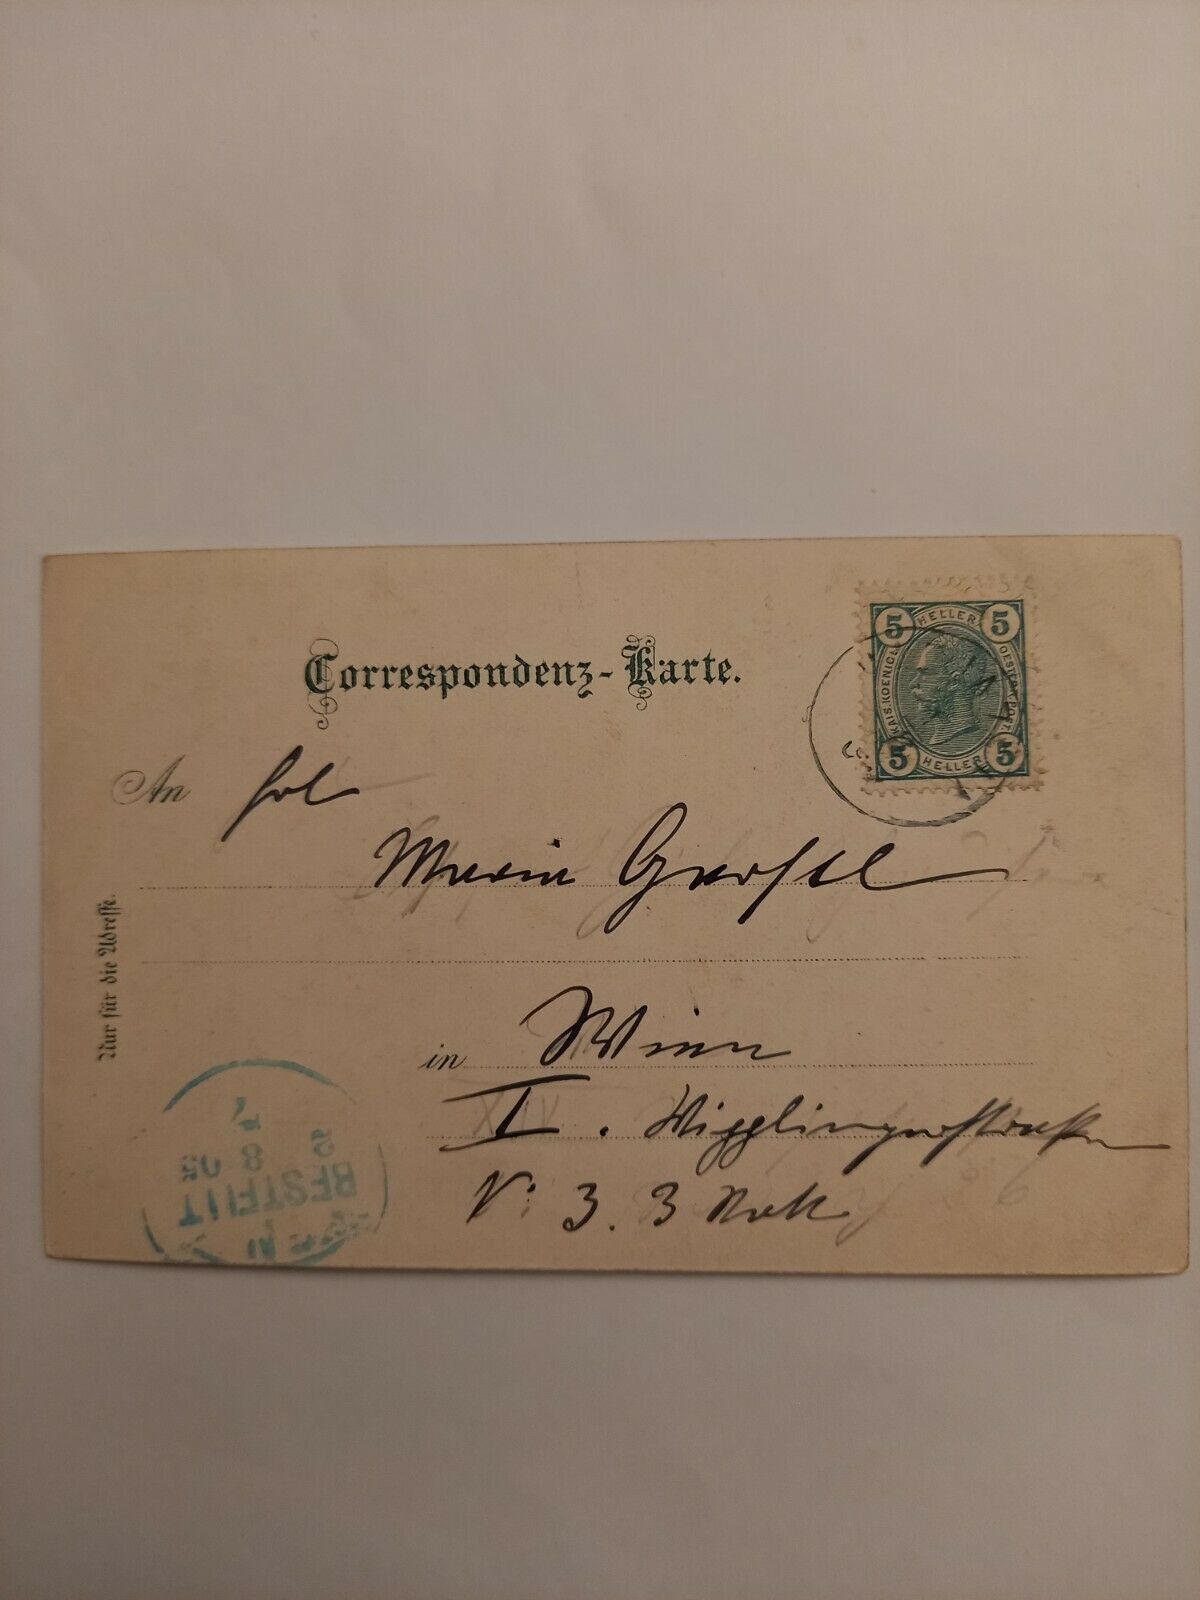 Correspondenz-Karte.
5 HELLER 5
KAIS. KOENIGL.
OESTERR. POST.
5 HELLER 5
An Frl
Marie Gerstl
Nur für die Adresse.
in Wien
I.
N: 3. 3 Stock
BESTELLT
9 8 05